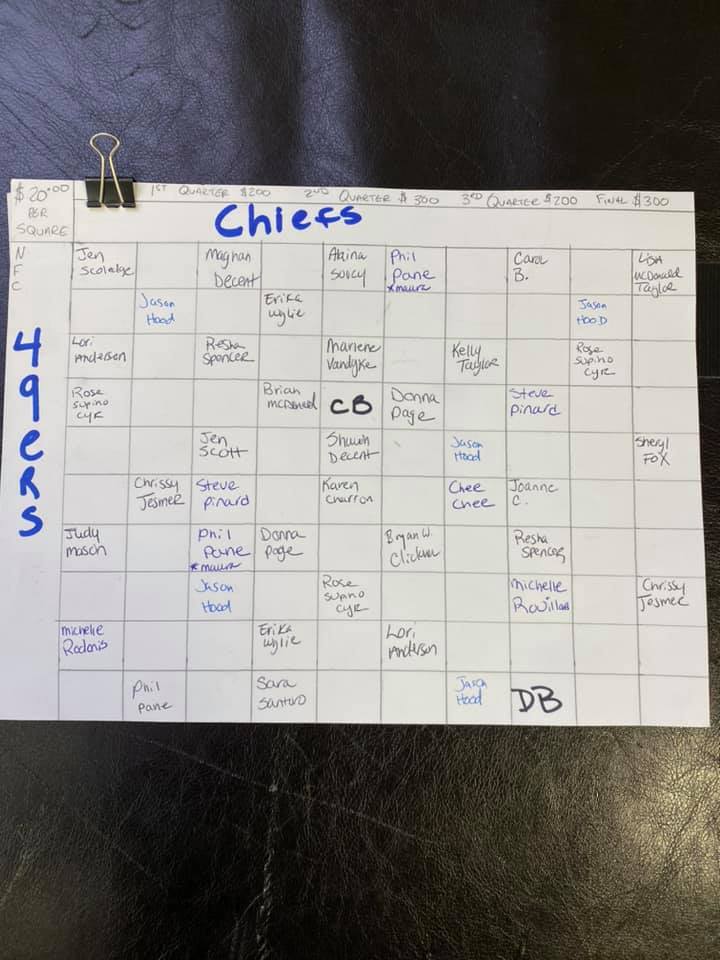 $20.00
PER
SQUARE
1ST QUARTER $200 2ND QUARTER $300 3RD QUARTER $200 FINAL $300
Chiefs
NFC
49ers
Jen
Maghan Decent
Phil Pane *maura
Carol B.
Lisa McDonald Taylor
Jason Hood
Erika Wylie
Jason Hood
Lori Andersen
Resha Spencer
Marlene Vandyke
Kelly Taylor
Rose Supino Cyr
Rose Supino Cyr
Brian McDonald
CB
Donna Page
Steve Pinard
Jen Scott
Decent
Jason Hood
Sheryl Fox
Chrissy Jesmer
Steve Pinard
Karen Charron
Chee Chee
Joanne C.
Judy Mason
Phil Pane *maura
Donna Page
Bryan W.
Resha Spencer
Jason Hood
Rose Supino Cyr
Michelle
Chrissy Jesmer
Michelle
Erika Wylie
Lori Andersen
Phil Pane
Sara
Jason Hood
DB